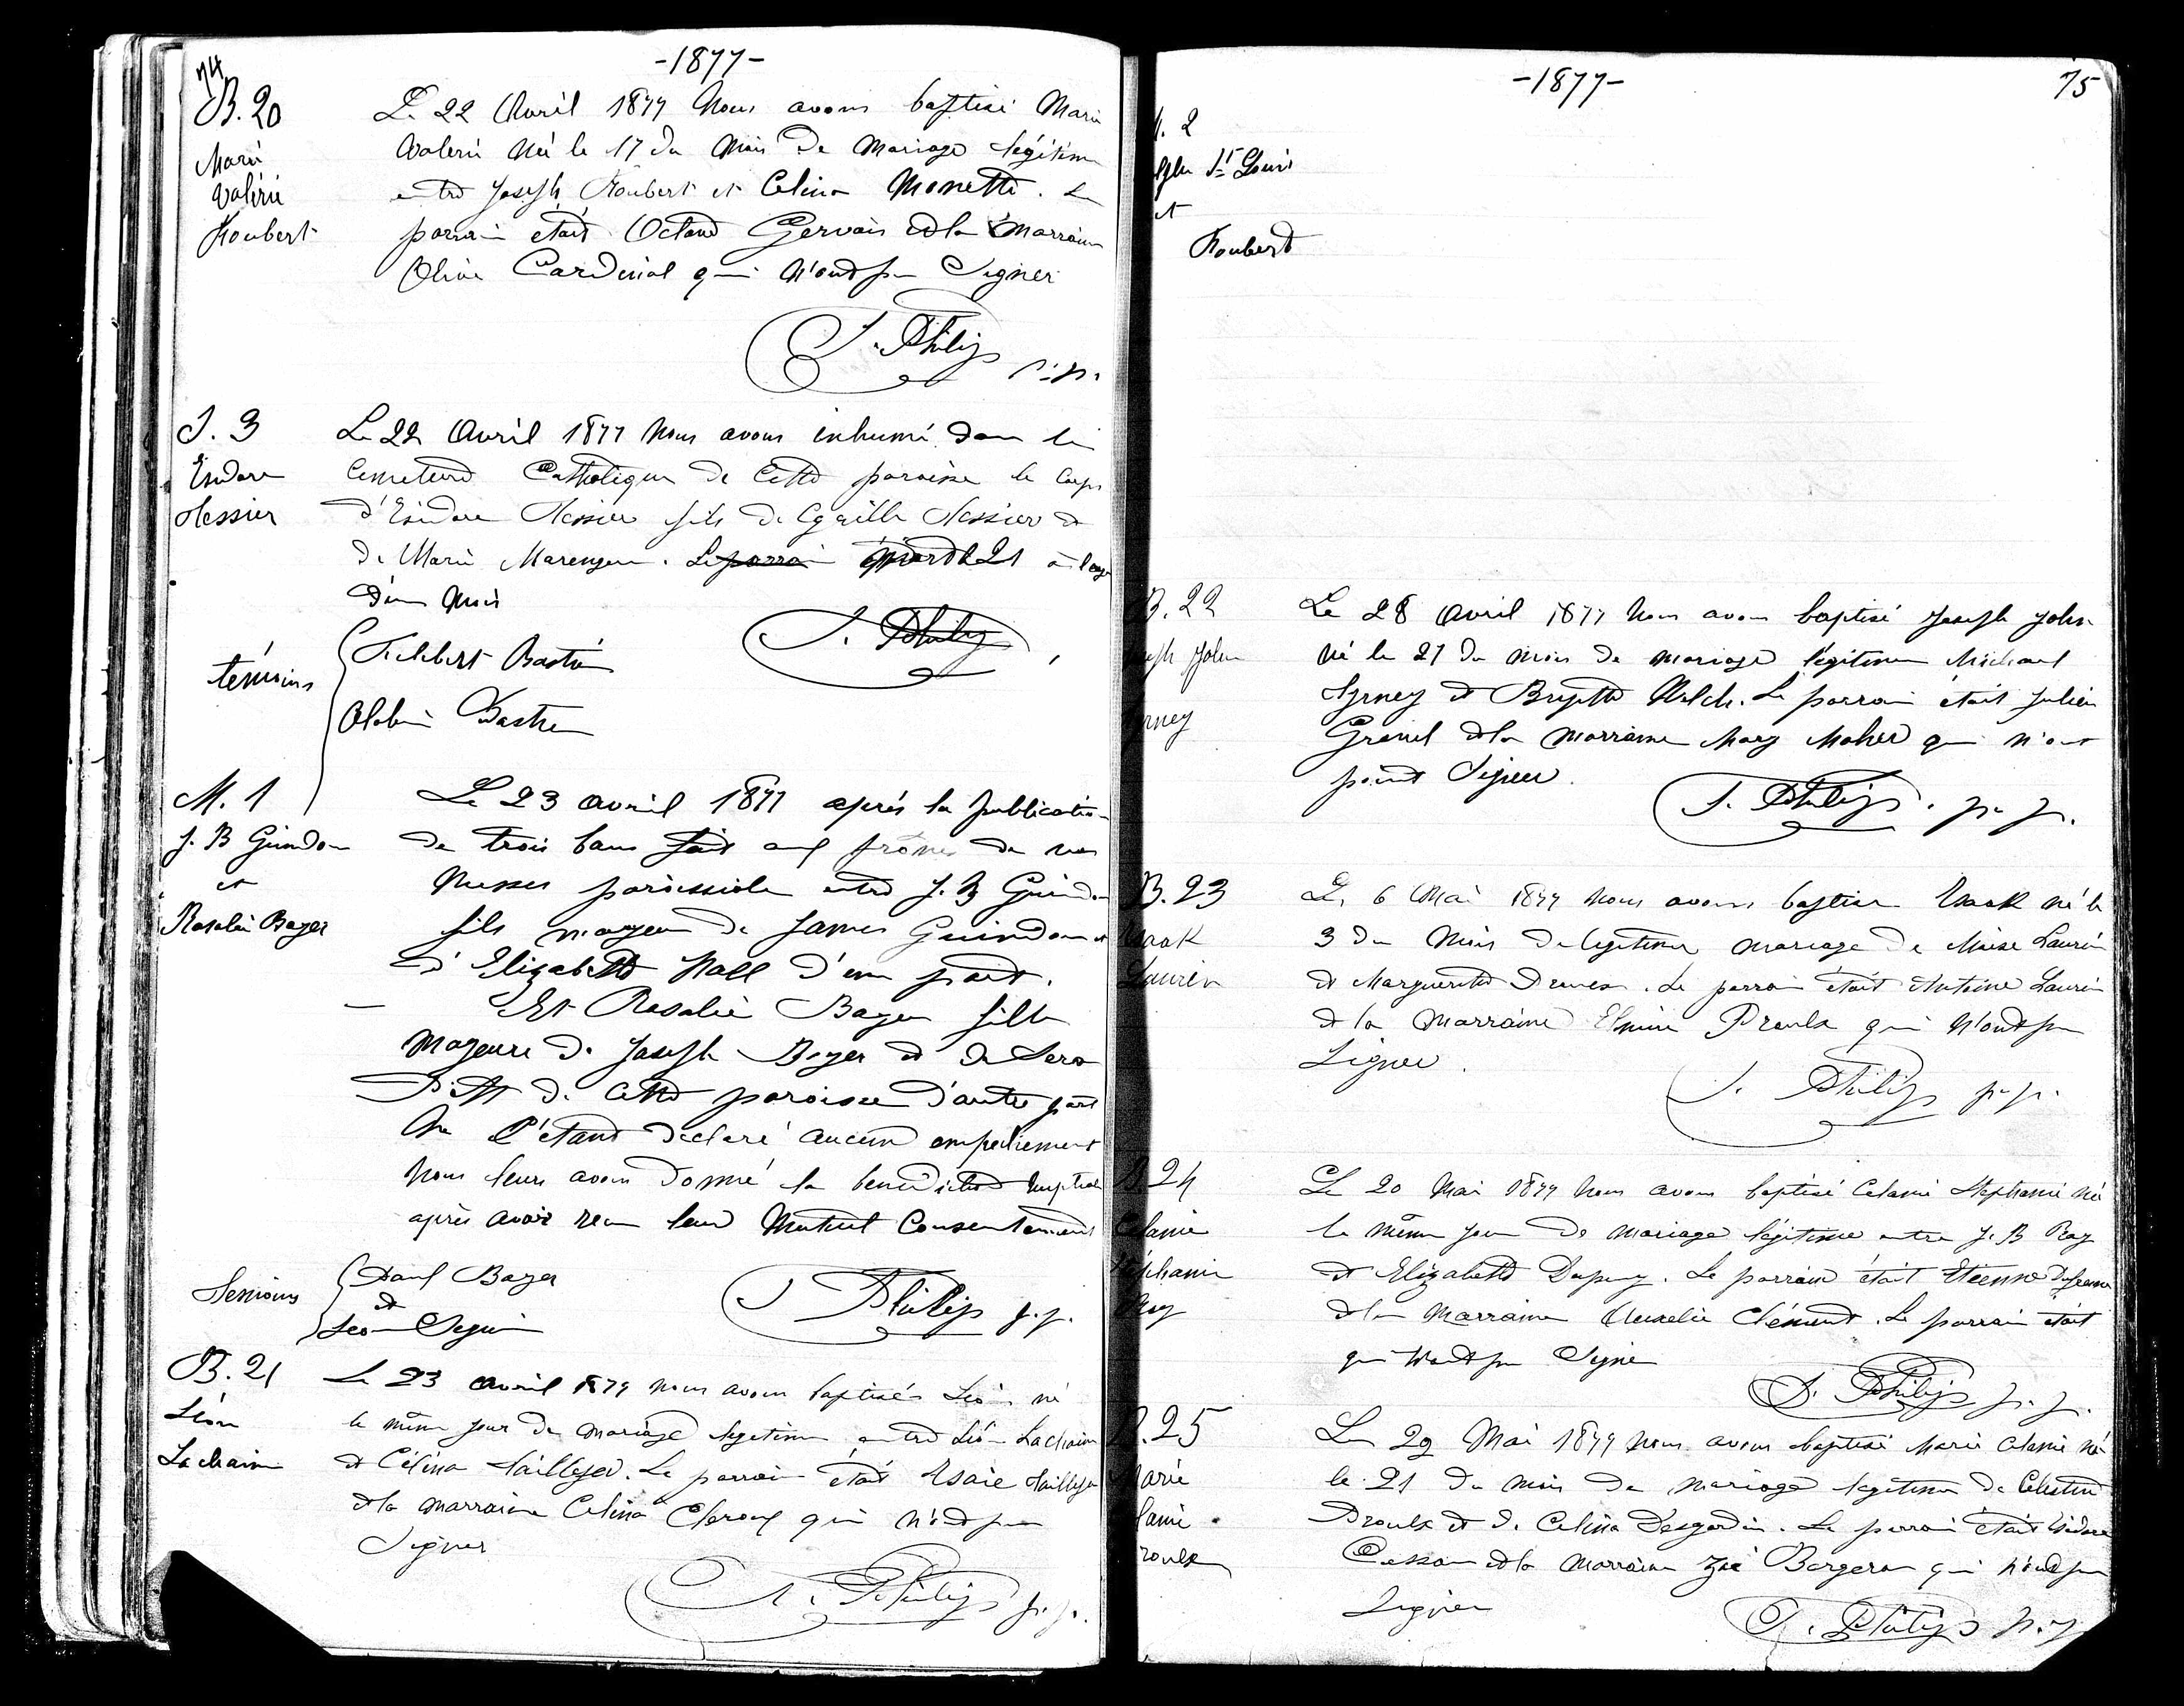 74
-1877-
B. 20
Marie
Valérie
Houbert
Le 22 Avril 1877 Nous avons baptisé Marie
Valerie Née le 17 du Mois De Mariage légitime
entre Joseph Houbert et Celina Monette. Le
parrain était Octave Gervais et la Marraine
Olive Cardinal qui N'ont pu Signer
J. Philip p.p.
S. 3
Isidore
Tessier
Le 22 Avril 1877 Nous avons inhumé dans le
Cemetiere Catholique de Cette paroisse le Corps
d'Isidore Tessier fils de Tessier et
de Marie . Le parrain mort le 21 à l'age
d'un Mois
témoins
Bastien
Bastien
J. Philip
M. 1
J. B Guindon
et
Rosalie Boyer
Le 23 avril 1877 après la publication
de trois bans fait aux prônes de nos
Messes paroissiale entre J. B Guindon
fils mageur de James Guindon et
d' Elizabeth Hall d'une part.
Et Rosalie Boyer fille
Mageure de Joseph Boyer et de
de Cette paroisse d'autre part
Ne S'étant déclaré aucun empechement
Nous leurs avons donné la benediction Nuptiale
après avoir recu leur Mutuel Consentement
Temoins
Paul Boyer
et
Leon Seguin
J Philip p.p.
B. 21
Léon
Lachaine
Le 23 avril 1877 nous avons baptisés Léon né
le même jour de mariage legitime entre Léon Lachaine
et Célina Taillefer. Le parrain était Esaie Taillefer
et la marraine Celina Cleroux qui n'ont pu
Signer
J. Philip p.p.
-1877-
75
M. 2
St Louis
et
Houbert
B. 22
Joseph John
Le 28 avril 1877 Nous avons baptisé Joseph John
Né le 21 du mois de mariage légitime Michael
et Welch. Le parrain était Julien
Gravel et la marraine Mary Maher qui n'ont
point Signer.
J. Philip. p. p.
B. 23
Isaak
Laurin
Le 6 Mai 1877 Nous avons baptise Isaak né le
3 du Mois de legitime mariage de Moise Laurin
et Marguerite . Le parrain était Antoine Laurin
et la Marraine Proulx qui N'ont pu
Signer.
J. Philip p.p.
B. 24
Celanie
Stéphanie
Roy
Le 20 Mai 1877 Nous avons baptisé Celanie Stephanie née
le même jour de mariage légitime entre J. B Roy
et Elizabeth Dupuy. Le parrain était Etienne
et la Marraine Aurelie Clément. Le parrain était
qui N'ont pu Signer
J. Philip p. p.
B. 25
Marie
Celanie
Proulx
Le 29 Mai 1877 Nous avons baptisé Marie Celanie née
le 21 du mois de mariage legitime de Celestin
Proulx et de Celina Desgardin. Le parrain était Isidore
et la Marraine Zoé Bergeron qui n'ont pu
Signer
J. Philip p.p.